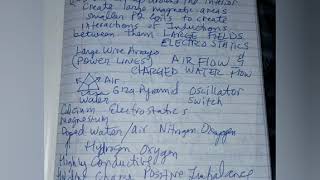 around the interior
Create large magnetic areas
smaller coils to create
interactions of Inductions
between them LARGE FIELDS
ELECTROSTATICS
Large Wire Arrays
(POWER LINES) AIR FLOW &
CHARGED WATER FLOW
AIR
Giza Pyramid Oscillator
water Switch
Calcium Electrostatics
magnesium
Doped Water/air Nitrogen Oxygen
Hydrogen Oxygen
Highly Conductive
Charge POSITIVE Imbalance